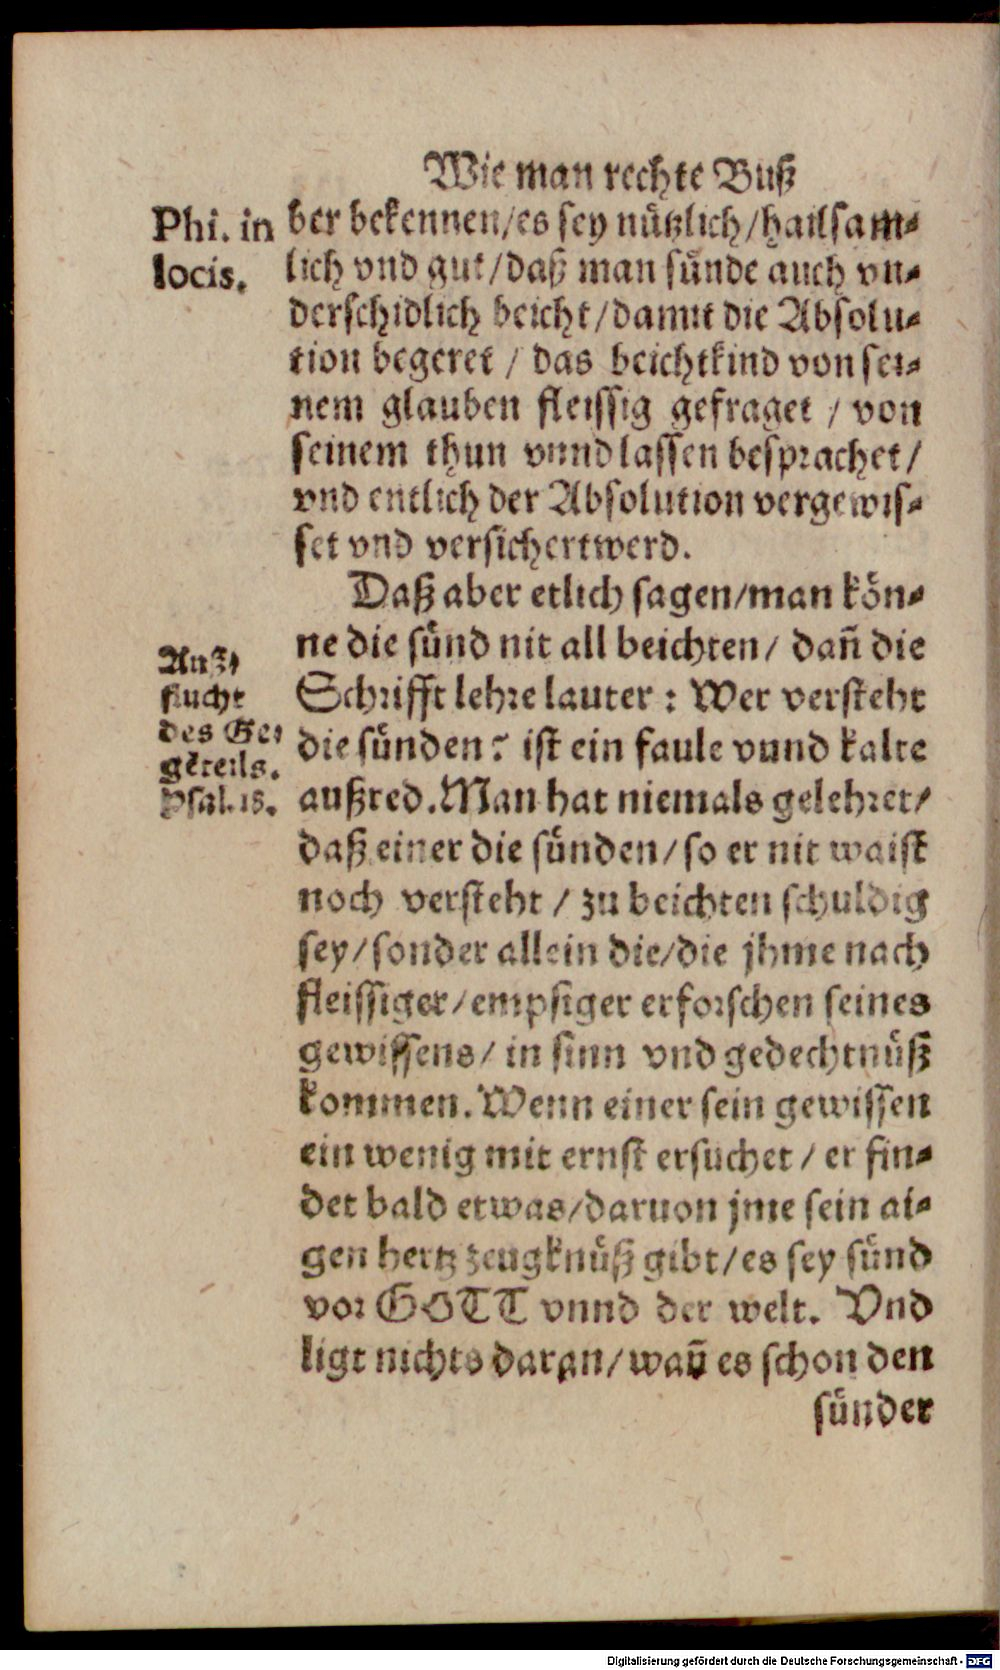 Wie man rechte Buß
Phi. in
locis.
ber bekennen/es sey nützlich/hailsam-
lich vnd gut/daß man sünde auch vn-
derschidlich beicht/damit die Absolu-
tion begeret / das beichtkind von sei-
nem glauben fleissig gefraget / von
seinem thun vnnd lassen besprachet/
vnd entlich der Absolution vergewis-
set vnd versichert werd.
Daß aber etlich sagen/man kön-
ne die sünd nit all beichten/ dañ die
Schrifft lehre lauter : Wer versteht
die sünden? ist ein faule vnnd kalte
außred. Man hat niemals gelehret/
daß einer die sünden/so er nit waist
noch versteht / zu beichten schuldig
sey/sonder allein die/die jhme nach
fleissiger/empsiger erforschen seines
gewissens/ in sinn vnd gedechtnüß
kommen. Wenn einer sein gewissen
ein wenig mit ernst ersuchet / er fin-
det bald etwas/daruon jme sein ai-
gen hertz zeugknüß gibt/es sey sünd
vor GOTT vnnd der welt. Vnd
ligt nichts daran/wañ es schon den
sünder
Auß-
flucht
des Ge-
gẽteils.
Psal. 18.
Digitalisierung gefördert durch die Deutsche Forschungsgemeinschaft - DFG